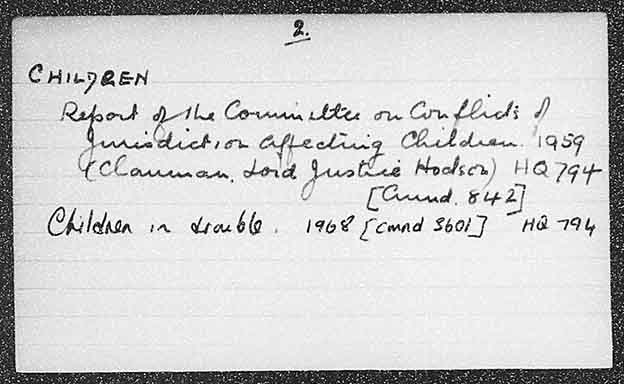 2.
CHILDREN
Report of the Committee on Conflicts of
Jurisdiction affecting Children. 1959
(Chairman. Lord Justice Hodson) HQ 794
[Cmnd. 842]
Children in trouble. 1968 [cmnd 3601] HQ 794